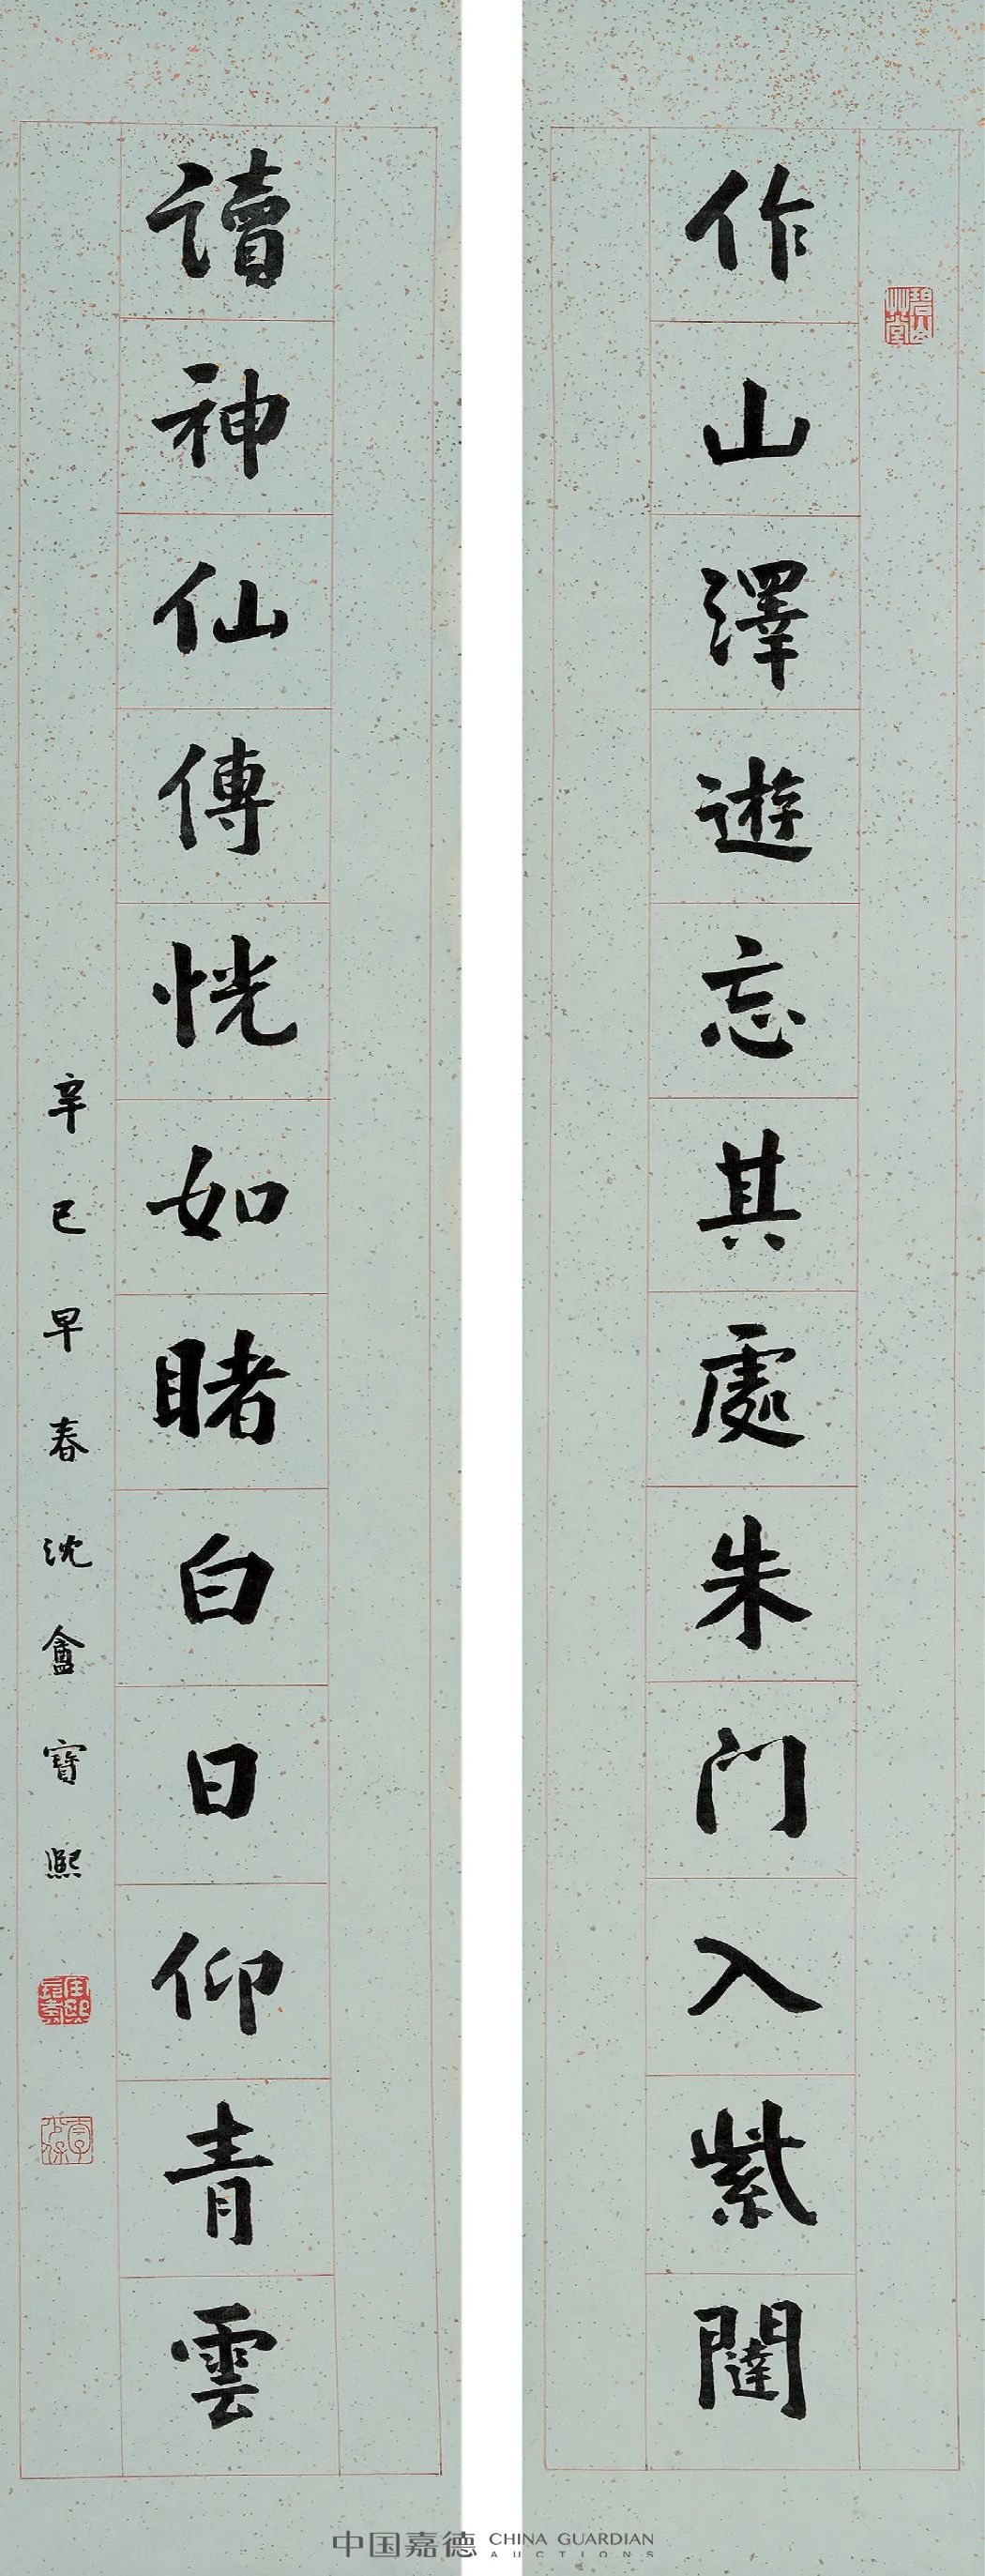 作山澤遊忘其處朱门入紫闥
讀神仙傳恍如睹白日仰青雲
辛巳早春沈盦寶熙
中国嘉德 CHINA GUARDIAN
AUCTIONS